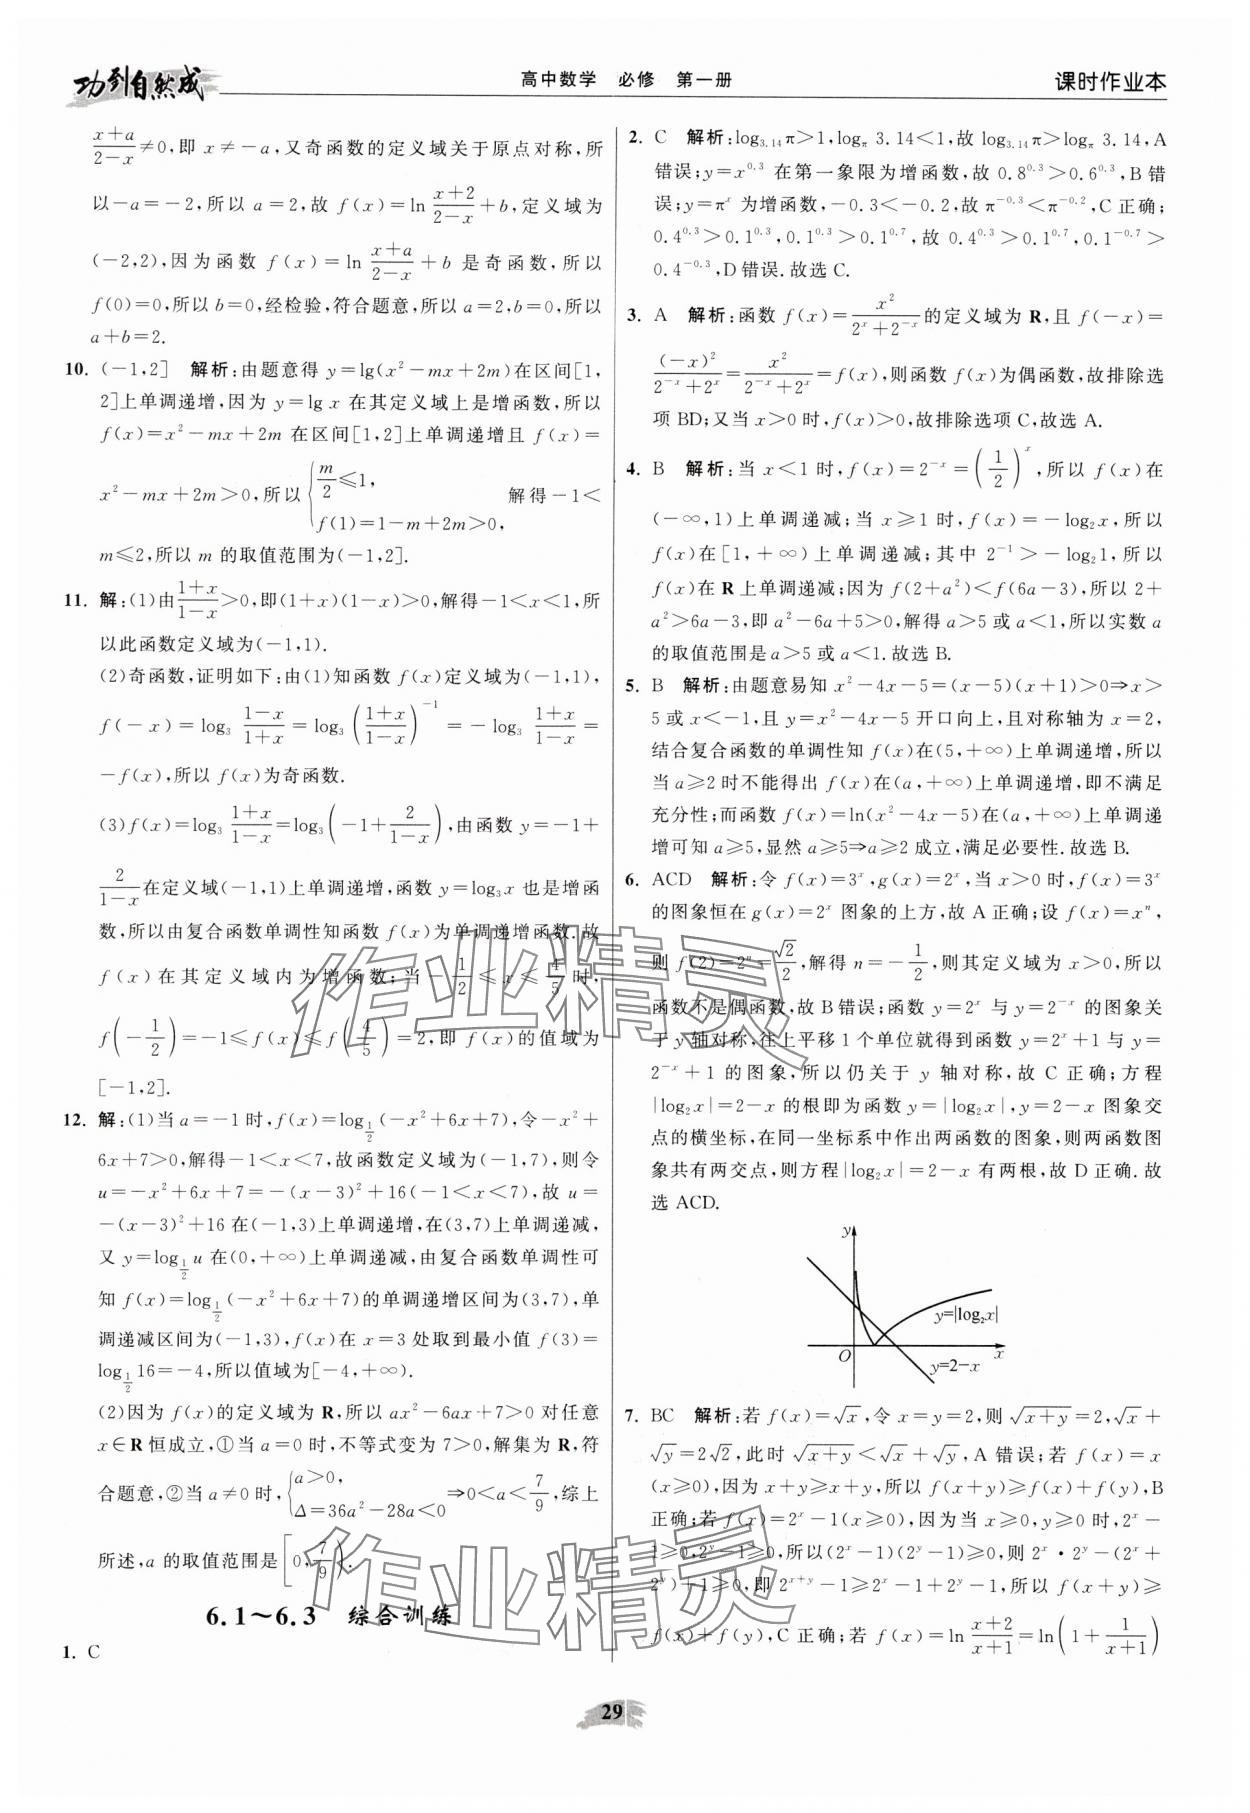 功到自然成
高中数学 必修 第一册
课时作业本
(x+a)/(2-x)≠0,即 x≠-a,又奇函数的定义域关于原点对称,所
以-a=-2,所以 a=2,故 f(x)=ln (x+2)/(2-x)+b,定义域为
(-2,2),因为函数 f(x)=ln (x+a)/(2-x)+b 是奇函数,所以
f(0)=0,所以 b=0,经检验,符合题意,所以 a=2,b=0,所以
a+b=2.
10. (-1,2] 解析:由题意得 y=lg(x²-mx+2m)在区间[1,
2]上单调递增,因为 y=lg x 在其定义域上是增函数,所以
f(x)=x²-mx+2m 在区间[1,2]上单调递增且 f(x)=
x²-mx+2m>0,所以{m/2≤1, f(1)=1-m+2m>0, 解得-1<
m≤2,所以 m 的取值范围为(-1,2].
11. 解:(1)由(1+x)/(1-x)>0,即(1+x)(1-x)>0,解得-1<x<1,所
以此函数定义域为(-1,1).
(2)奇函数,证明如下:由(1)知函数 f(x)定义域为(-1,1),
f(-x)=log₃ (1-x)/(1+x)=log₃((1+x)/(1-x))⁻¹=-log₃ (1+x)/(1-x)=
-f(x),所以 f(x)为奇函数.
(3)f(x)=log₃ (1+x)/(1-x)=log₃(-1+2/(1-x)),由函数 y=-1+
2/(1-x)在定义域(-1,1)上单调递增,函数 y=log₃x 也是增函
数,所以由复合函数单调性知函数 f(x)为单调递增函数.故
f(x)在其定义域内为增函数;当-1/2≤x≤4/5时,
f(-1/2)=-1≤f(x)≤f(4/5)=2,即 f(x)的值域为
[-1,2].
12. 解:(1)当 a=-1 时,f(x)=log_(1/2)(-x²+6x+7),令-x²+
6x+7>0,解得-1<x<7,故函数定义域为(-1,7),则令
u=-x²+6x+7=-(x-3)²+16(-1<x<7),故 u=
-(x-3)²+16 在(-1,3)上单调递增,在(3,7)上单调递减,
又 y=log_(1/2) u 在(0,+∞)上单调递减,由复合函数单调性可
知 f(x)=log_(1/2)(-x²+6x+7)的单调递增区间为(3,7),单
调递减区间为(-1,3),f(x)在 x=3 处取到最小值 f(3)=
log_(1/2)16=-4,所以值域为[-4,+∞).
(2)因为 f(x)的定义域为 R,所以 ax²-6ax+7>0 对任意
x∈R 恒成立,①当 a=0 时,不等式变为 7>0,解集为 R,符
合题意,②当 a≠0 时,{a>0, Δ=36a²-28a<0⇒0<a<7/9,综上
所述,a 的取值范围是[0,7/9).
6.1～6.3 综合训练
1. C
2. C 解析:log₃.₁₄π>1,log_π 3.14<1,故 log₃.₁₄π>log_π 3.14,A
错误;y=x^0.3 在第一象限为增函数,故 0.8^0.3>0.6^0.3,B 错
误;y=π^x 为增函数,-0.3<-0.2,故 π^-0.3<π^-0.2,C 正确;
0.4^0.3>0.1^0.3,0.1^0.3>0.1^0.7,故 0.4^0.3>0.1^0.7,0.1^-0.7>
0.4^-0.3,D 错误.故选 C.
3. A 解析:函数 f(x)=x²/(2^x+2^-x)的定义域为 R,且 f(-x)=
(-x)²/(2^-x+2^x)=x²/(2^-x+2^x)=f(x),则函数 f(x)为偶函数,故排除选
项 BD;又当 x>0 时,f(x)>0,故排除选项 C,故选 A.
4. B 解析:当 x<1 时,f(x)=2^-x=(1/2)^x,所以 f(x)在
(-∞,1)上单调递减;当 x≥1 时,f(x)=-log₂x,所以
f(x)在[1,+∞)上单调递减;其中 2⁻¹>-log₂1,所以
f(x)在 R 上单调递减;因为 f(2+a²)<f(6a-3),所以 2+
a²>6a-3,即 a²-6a+5>0,解得 a>5 或 a<1,所以实数 a
的取值范围是 a>5 或 a<1.故选 B.
5. B 解析:由题意易知 x²-4x-5=(x-5)(x+1)>0⇒x>
5 或 x<-1,且 y=x²-4x-5 开口向上,且对称轴为 x=2,
结合复合函数的单调性知 f(x)在(5,+∞)上单调递增,所以
当 a≥2 时不能得出 f(x)在(a,+∞)上单调递增,即不满足
充分性;而函数 f(x)=ln(x²-4x-5)在(a,+∞)上单调递
增可知 a≥5,显然 a≥5⇒a≥2 成立,满足必要性.故选 B.
6. ACD 解析:令 f(x)=3^x,g(x)=2^x,当 x>0 时,f(x)=3^x
的图象恒在 g(x)=2^x 图象的上方,故 A 正确;设 f(x)=x^n,
则 f(2)=2^n=√2/2,解得 n=-1/2,则其定义域为 x>0,所以
函数不是偶函数,故 B 错误;函数 y=2^x 与 y=2^-x 的图象关
于 y 轴对称,往上平移 1 个单位就得到函数 y=2^x+1 与 y=
2^-x+1 的图象,所以仍关于 y 轴对称,故 C 正确;方程
|log₂x|=2-x 的根即为函数 y=|log₂x|,y=2-x 图象交
点的横坐标,在同一坐标系中作出两函数的图象,则两函数图
象共有两交点,则方程|log₂x|=2-x 有两根,故 D 正确.故
选 ACD.
y
y=|log₂x|
O
x
y=2-x
7. BC 解析:若 f(x)=√x,令 x=y=2,则 √(x+y)=2,√x+
√y=2√2,此时 √(x+y)<√x+√y,A 错误;若 f(x)=x
(x≥0),因为 x+y≥x+y,所以 f(x+y)≥f(x)+f(y),B
正确;若 f(x)=2^x-1(x≥0),因为当 x≥0,y≥0 时,2^x-
1≥0,2^y-1≥0,所以(2^x-1)(2^y-1)≥0,则 2^x·2^y-(2^x+
2^y)+1≥0,即 2^(x+y)-1≥2^x-1+2^y-1,所以 f(x+y)≥
f(x)+f(y),C 正确;若 f(x)=ln (x+2)/(x+1)=ln(1+1/(x+1))
作业精灵
作业精灵
29